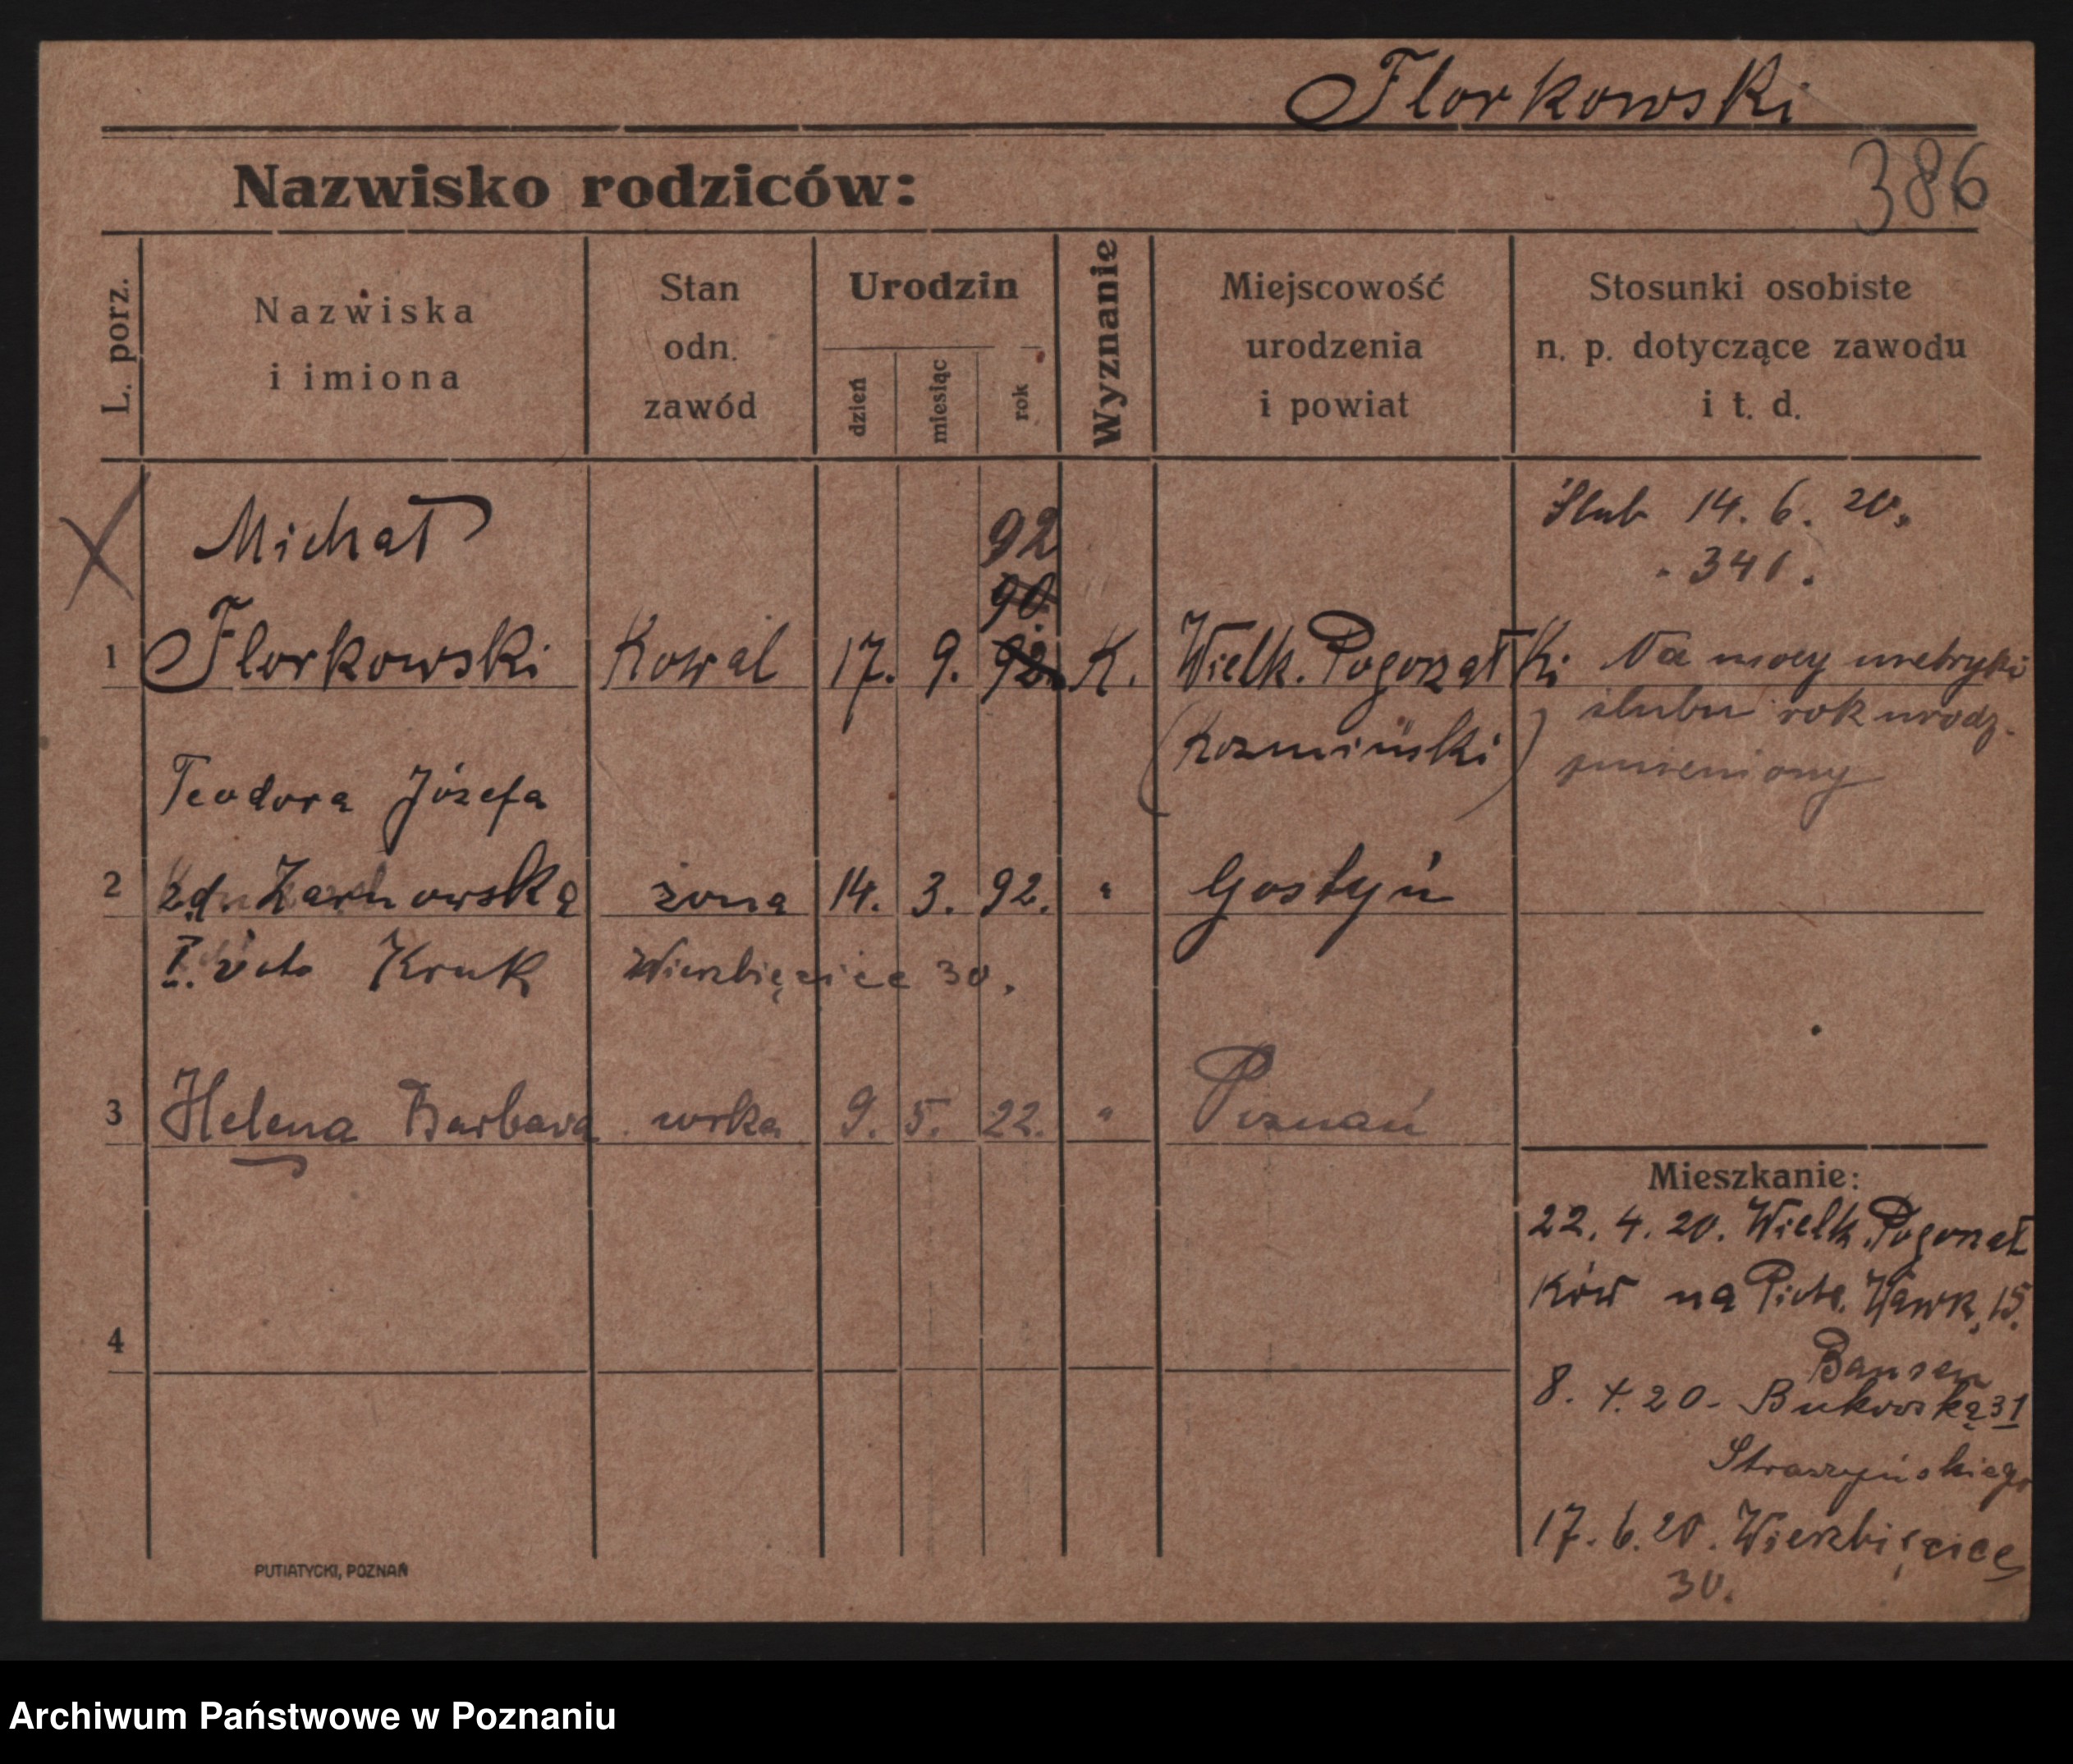 Florkowski
386
Nazwisko rodziców:
L. porz.
Nazwiska
i imiona
Stan
odn.
zawód
Urodzin
dzień
miesiąc
rok
Wyznanie
Miejscowość
urodzenia
i powiat
Stosunki osobiste
n. p. dotyczące zawodu
i t. d.
Michał
92
90.
Ślub 14. 6. 20.
341.
1 Florkowski Kowal 17. 9. 92. K. Wielk. Pogorzałki
(Kozmiński)
Na mocy metryki
ślubu rok urodz.
zmieniony
Teodora Józefa
2 zd. Żarnowska żona 14. 3. 92. " Gostyń
I. voto Kruk Wierzbięcice 30.
3 Helena Barbara córka 9. 5. 22. " Poznań
4
Mieszkanie:
22. 4. 20. Wielk. Pogorzał
ków na Piotr. Wawrz. 15.
8. 4. 20 - Bukowską 31
17. 6. 20. Wierzbięcice
30.
PUTIATYCKI, POZNAŃ
Archiwum Państwowe w Poznaniu